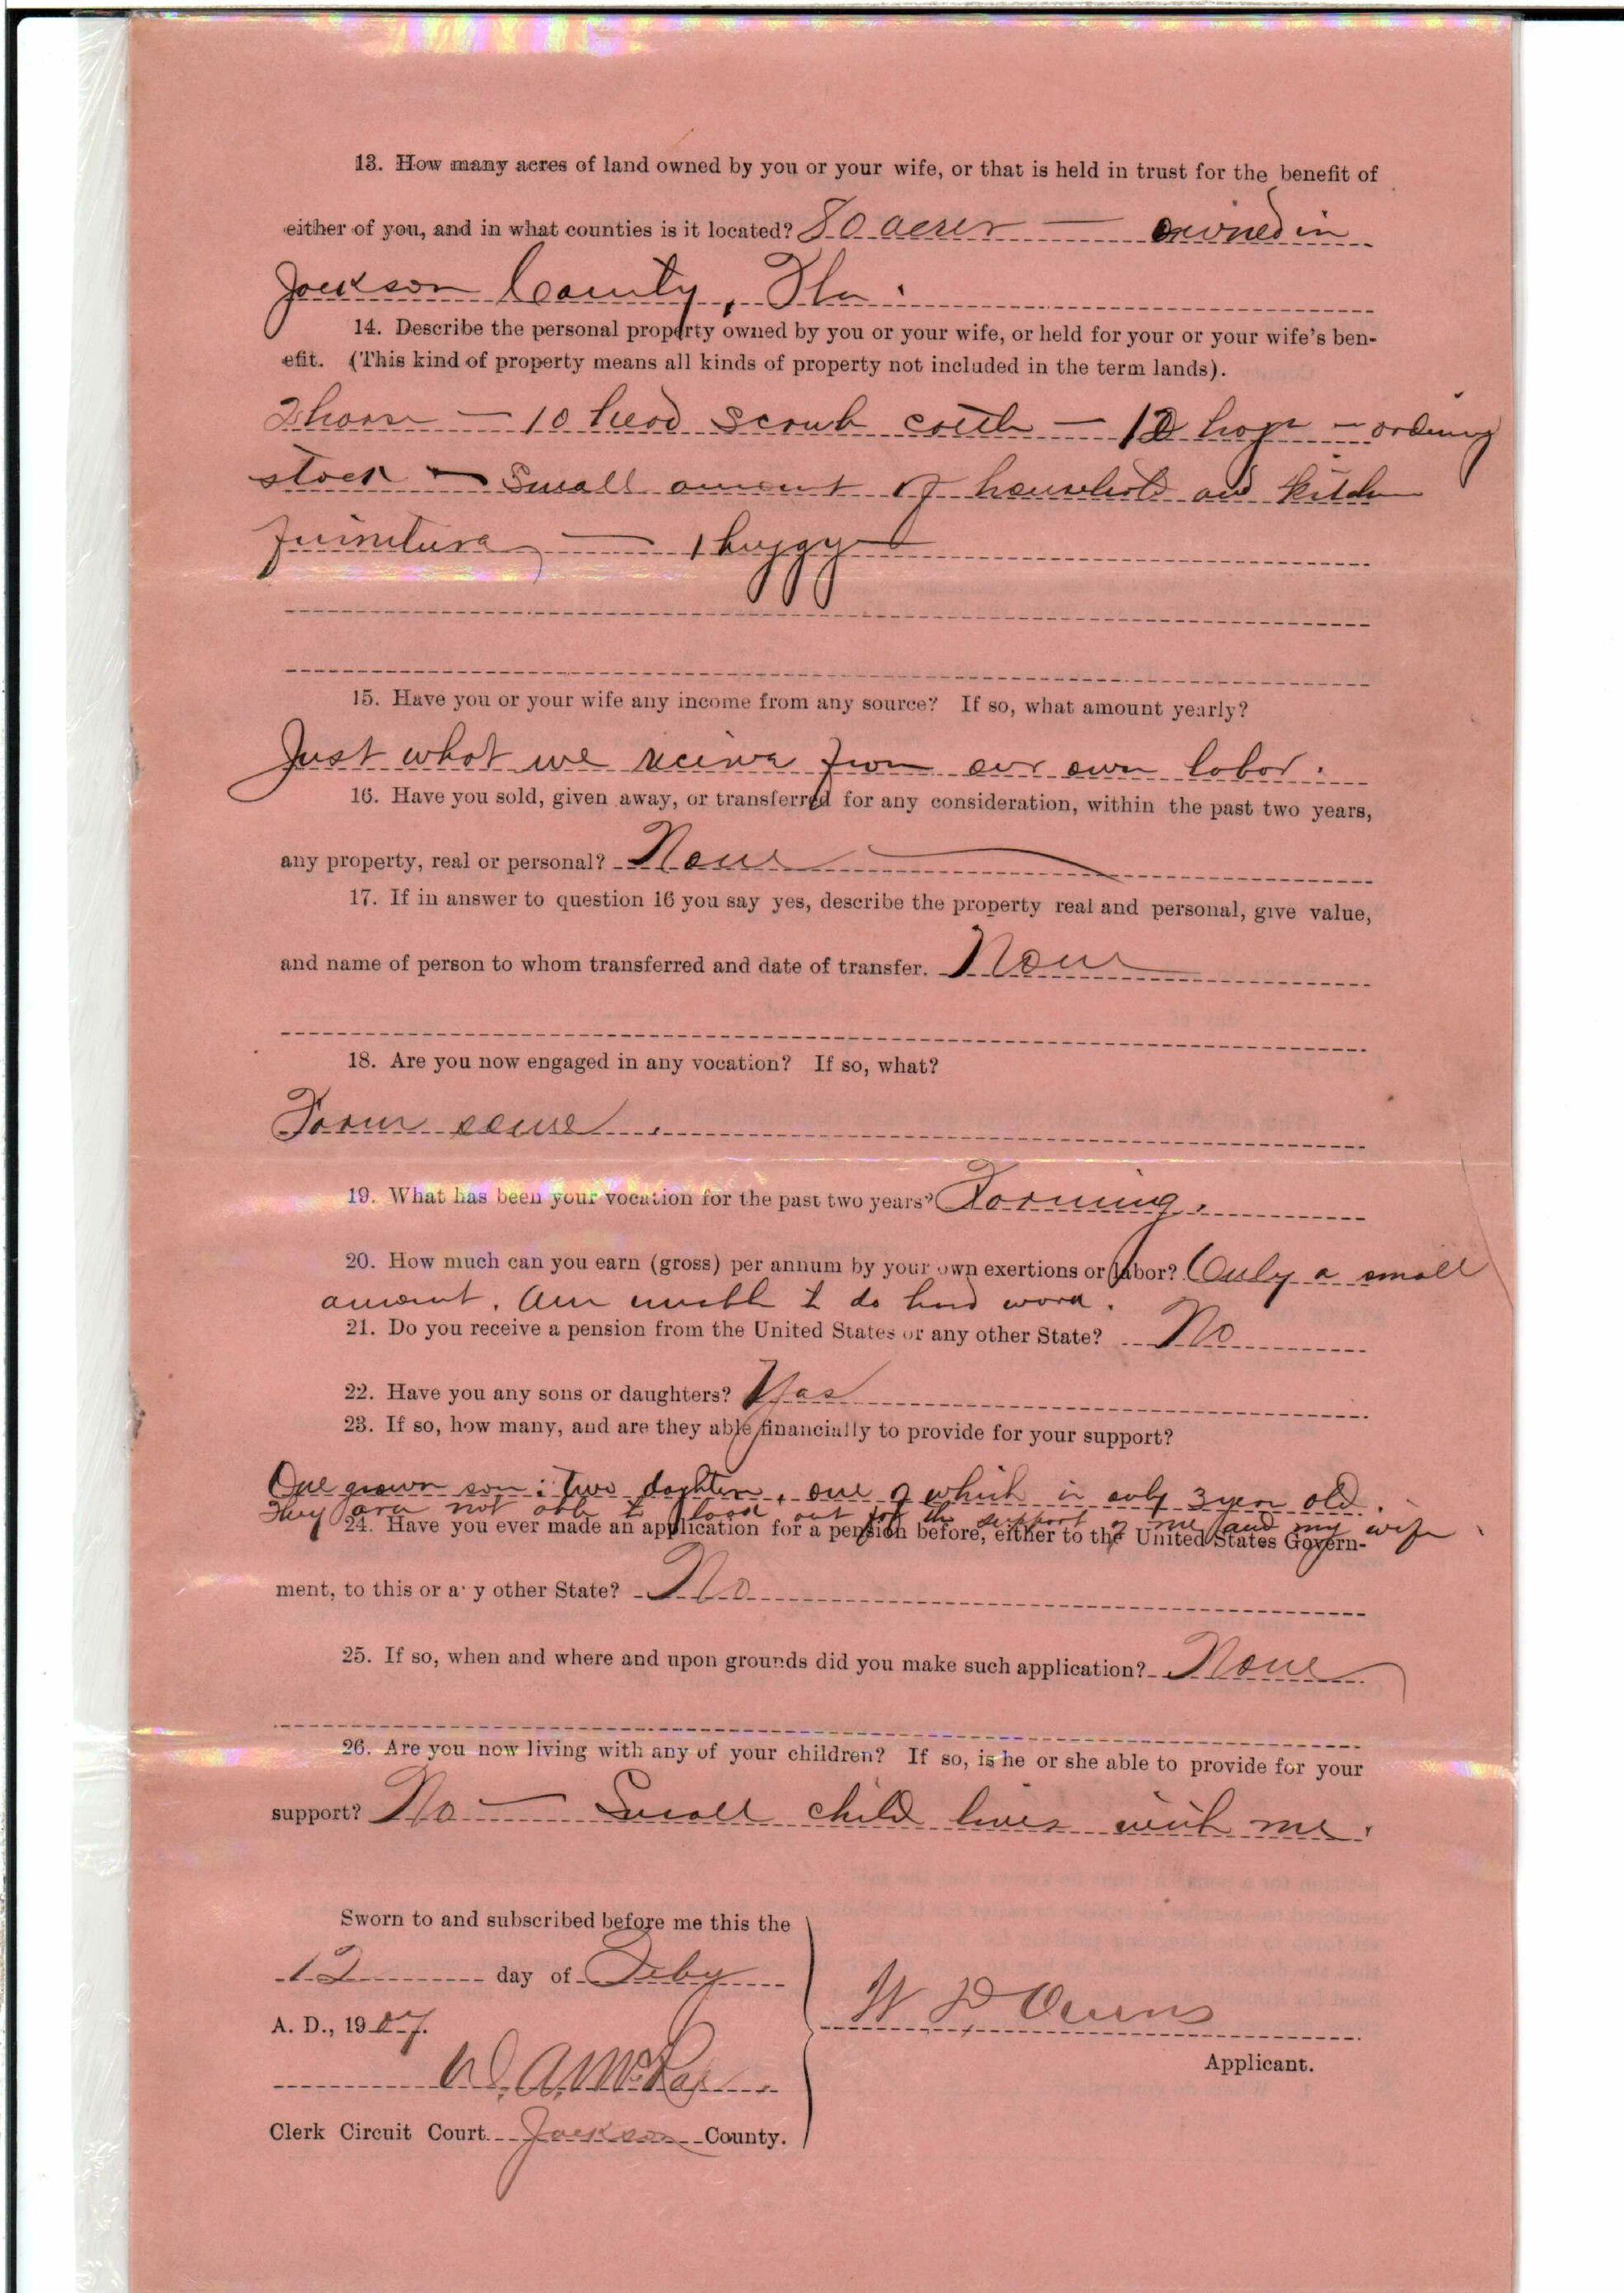 13. How many acres of land owned by you or your wife, or that is held in trust for the benefit of
either of you, and in what counties is it located? 80 acres — owned in
Jackson County, Fla.
14. Describe the personal property owned by you or your wife, or held for your or your wife's ben-
efit. (This kind of property means all kinds of property not included in the term lands).
10 head scrub cattle — 12 hogs —
stock — Small amount of household and kitchen
furniture — 1 buggy
15. Have you or your wife any income from any source? If so, what amount yearly?
Just what we receive from our own labor.
16. Have you sold, given away, or transferred for any consideration, within the past two years,
any property, real or personal? None
17. If in answer to question 16 you say yes, describe the property real and personal, give value,
and name of person to whom transferred and date of transfer. None
18. Are you now engaged in any vocation? If so, what?
Farm
19. What has been your vocation for the past two years? Farming.
20. How much can you earn (gross) per annum by your own exertions or labor? Only a small
amount. Am unable to do hard work.
21. Do you receive a pension from the United States or any other State? No
22. Have you any sons or daughters? Yas
23. If so, how many, and are they able financially to provide for your support?
One grown son: two daghters, one of which is only 3 years old.
They are not able to out for the support of me and my wife
24. Have you ever made an application for a pension before, either to the United States Govern-
ment, to this or a y other State? No
25. If so, when and where and upon grounds did you make such application? None
26. Are you now living with any of your children? If so, is he or she able to provide for your
support? No — Small child lives with me.
Sworn to and subscribed before me this the
12 day of Feby
A. D., 1907.
W D Owens
Applicant.
W. A. McRae
Clerk Circuit Court Jackson County.